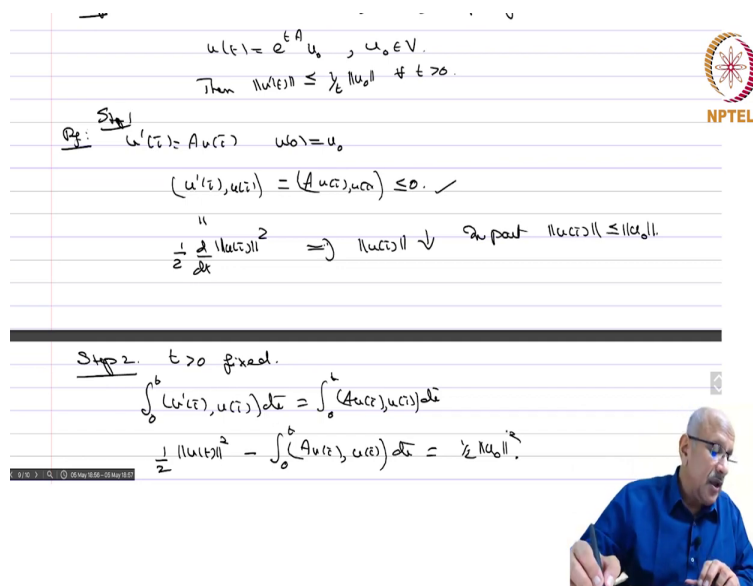 u(t) = e^{tA} u_0 , u_0 ∈ V.
Then ||u'(t)|| ≤ 1/t ||u_0|| ∀ t > 0.
NPTEL
Step 1
Pf: u'(τ) = Au(τ) u(0) = u_0
(u'(τ), u(τ)) = (Au(τ), u(τ)) ≤ 0. ✓
"
1/2 d/dτ ||u(τ)||^2 ⇒ ||u(τ)|| ↓ In part ||u(τ)|| ≤ ||u_0||.
Step 2. t > 0 fixed.
∫_0^t (u'(τ), u(τ)) dτ = ∫_0^t (Au(τ), u(τ)) dτ
1/2 ||u(t)||^2 - ∫_0^t (Au(τ), u(τ)) dτ = 1/2 ||u_0||^2.
9/10 05 May 18:56 - 05 May 18:57